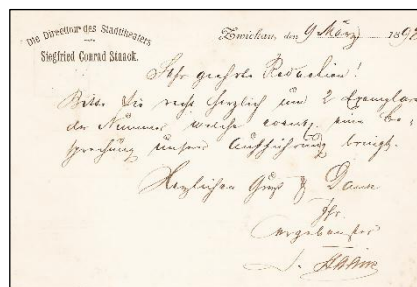 Die Direction des Stadttheaters
Siegfried Conrad Staack.
Zwickau, den 9 März 1892
Sehr geehrte Redaction!
Bitte Sie recht herzlich um 2 Exemplare
der Nummer welche event. eine Be-
sprechung unserer Aufführung bringt.
Herzlichen Gruß & Dank
Ihr
ergebenster